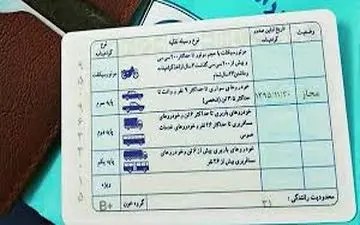 وضعیت
تاریخ اولین صدور گواهینامه
نوع وسیله نقلیه
نوع گواهینامه
موتورسیکلت با حجم موتور تا حداکثر ۲۰۰ سی سی
و بیش از ۲۰۰ سی سی
موتورسیکلت
مجاز
۱۳۹۵/۱۱/۳۰
خودروهای سواری تا حداکثر ۹ نفر و وانت تا
حداکثر ۳/۵ تن (شخصی)
پایه سوم
خودروهای باربری تا حداکثر ۶ تن و خودروهای
مسافربری تا حداکثر ۲۶ نفر و خودروهای خدمات
عمومی
پایه دوم
خودروهای باربری بیش از ۶ تن و خودروهای
مسافربری بیش از ۲۶ نفر
پایه یکم
ویژه
محدودیت رانندگی:
گروه خون
B+